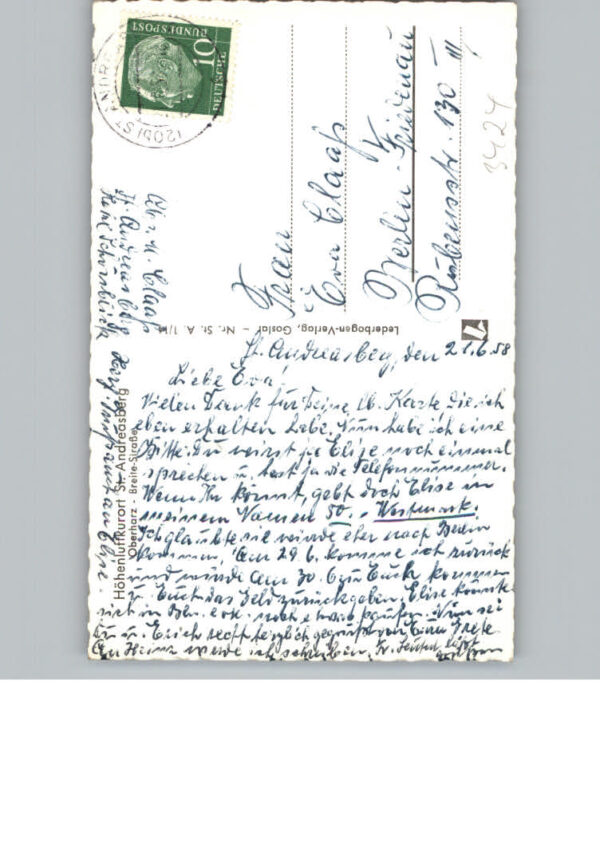 DEUTSCHE
BUNDESPOST
10
(20b) ST. ANDR
3424
Frau
Eva Claaß
Berlin-Friedenau
Rubensstr 130 III
Abs. H. Claaß
St. Andreasberg
Haus
Lederbogen-Verlag, Goslar – Nr. St. A. 1/14
Höhenluftkurort St. Andreasberg
Oberharz - Breite-Straße
St. Andreasberg, den 21.6.58
Liebe Eva!
Vielen Dank für Deine lb. Karte die ich
eben erhalten habe. Nun habe ich eine
Bitte: Du wirst ja Elise noch einmal
sprechen u. hast ja die Telefonnummer.
Wenn Ihr könnt, gebt doch Elise in
meinem Namen 50.- Westmark.
Ich glaubte sie würde eher nach Berlin
kommen. Am 29 6. komme ich zurück
und würde am 30. 6 zu Euch kommen
u. Euch das Geld zurückgeben. Elise könnte
sich in Bln. noch etwas kaufen. Nun sei
Du u. Erich recht herzlich gegrüßt von Eurer Grete
An Heinz werde ich schreiben.